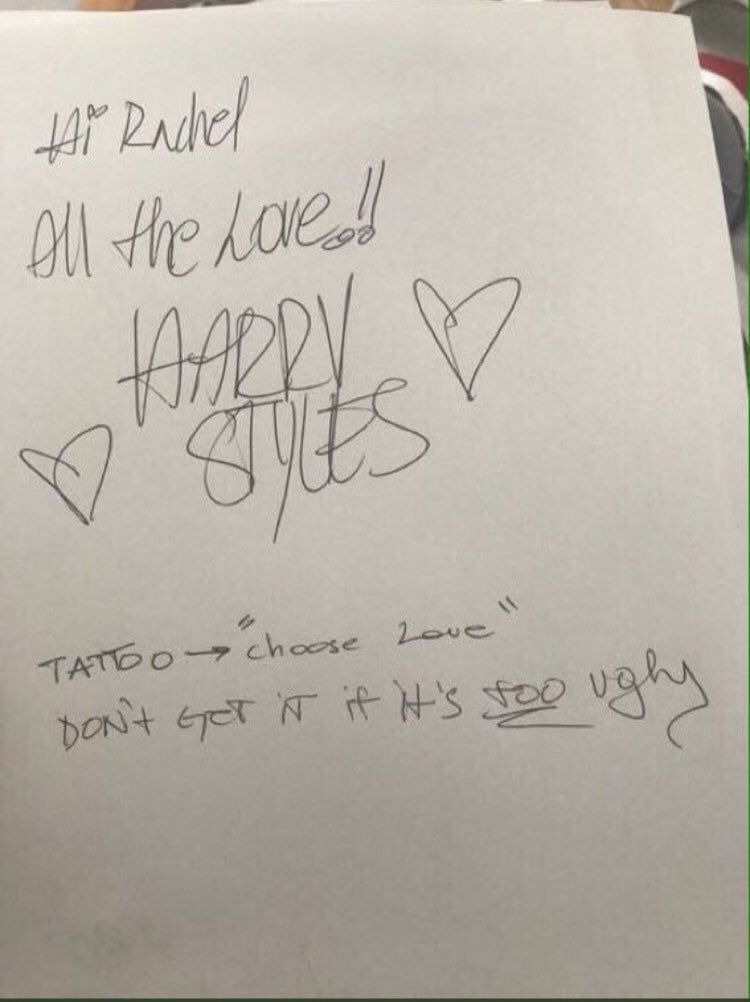 Hi Rachel
All the Love!!
HARRY
STYLES
TATTOO → "choose Love"
DON'T GET IT if it's too ugly